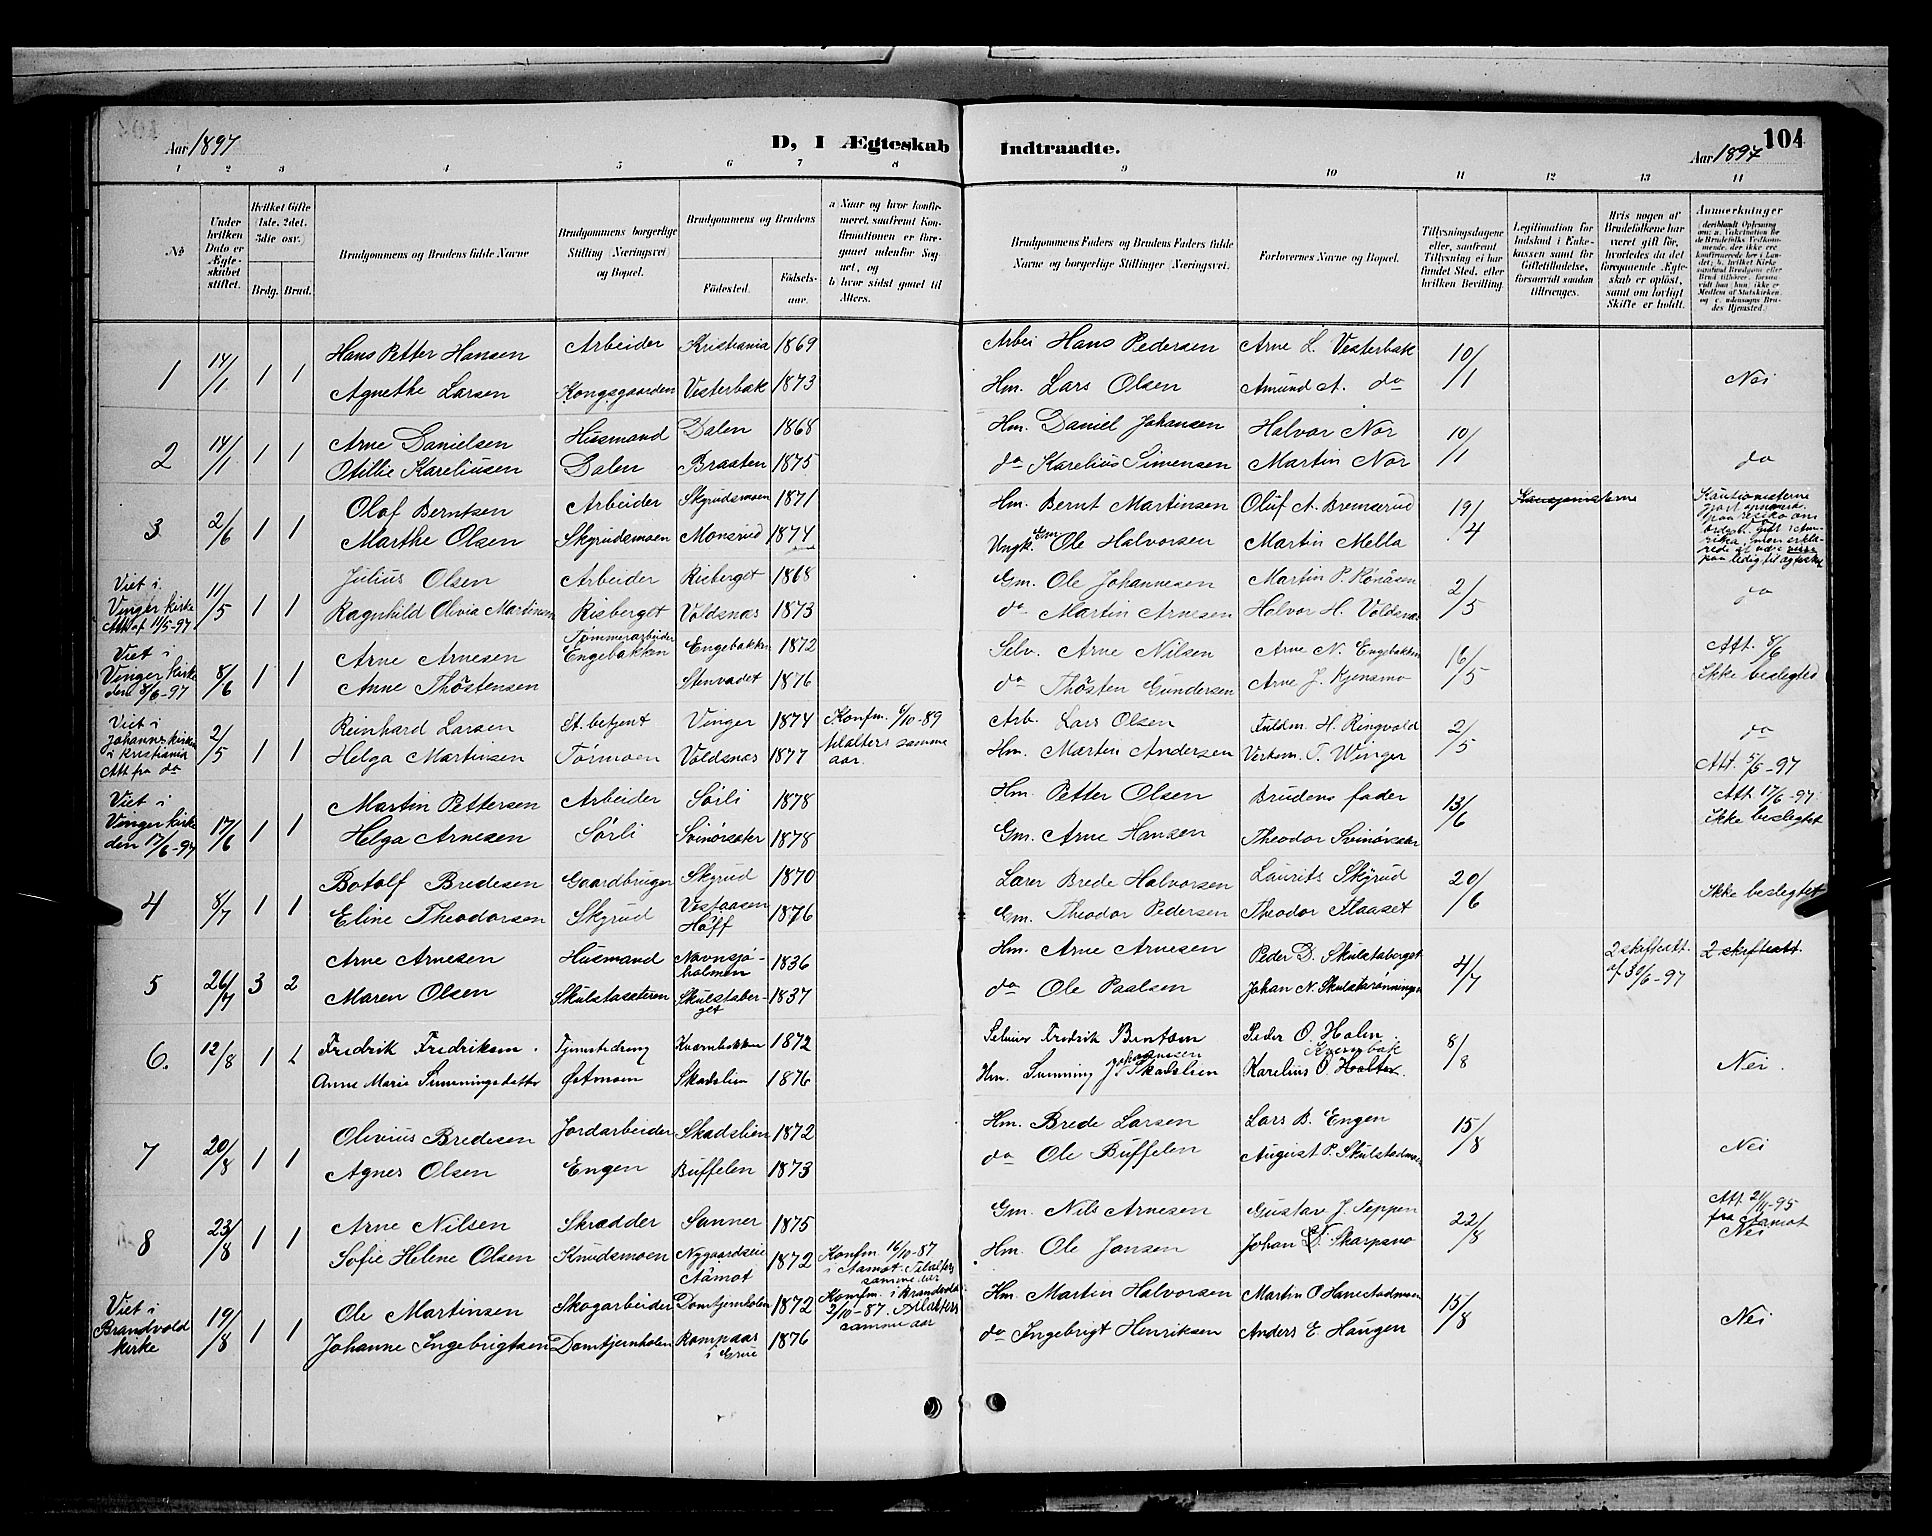 104
Aar 1897
D, I Ægteskab Indtraadte.
Aar 1897
1 2 3 4 5 6 7 8 9 10 11 12 13 14
No
Under hvilken Dato er Ægteskabet stiftet.
Hvilket Gifte (1ste, 2det, 3die osv.)
Brdg. Brud.
Brudgommens og Brudens fulde Navne
Brudgommens borgerlige Stilling Næringsvei og Bopæl.
Brudgommens og Brudens
Fødested. Fødselsaar.
a Naar og hvor konfirmeret, saafremt Konfirmationen er foregaaet udenfor Sognet, og
b hvor sidst gaaet til Alters.
Brudgommens Faders og Brudens Faders fulde Navne og borgerlige Stillinger Næringsvei.
Forlovernes Navne og Bopæl.
Tillysningsdagene eller, saafremt Tillysning ei har fundet Sted, efter hvilken Bevilling
Legitimation for Indskud i Enkekassen samt for Giftetilladelse, forsaavidt saadan tiltrænges.
Hvis nogen af Brudefolkene har været gift før, hvorledes da det foregaaende Ægteskab er opløst, samt om lovligt Skifte er holdt.
Anmerkninger
1 14/1 1 1 Hans Petter Hansen Arbeider Kristiania 1869 Arbei Hans Pedersen Arne L. Vesterbak 10/1
Agnethe Larsen Kongsgaarden Vesterbak 1873 Hm. Lars Olsen Amund A. do Nei
2 14/1 1 1 Arne Danielsen Husmand Dalen 1868 Hm. Daniel Johansen Halvor Nor 10/1
Otillie Kareliusen Dalen Braaten 1875 do Karelius Simensen Martin Nor do
3 2/6 1 1 Olaf Berntsen Arbeider Skyrudsmoen 1871 Hm. Bernt Martinsen Oluf A. Brennerud 19/4 Kautionisterne
Marthe Olsen Skyrudsmoen Monsrud 1874 Ungk. Gm Ole Halvorsen Martin Mella
Viet i Vinger kirke Att af 11/5-97 11/5 1 1 Julius Olsen Arbeider Risberget 1868 Gm. Ole Johannesen Martin P. Rønåsen 2/5
Ragnhild Olivia Martinsen Risberget Voldsnæs 1873 do Martin Arnesen Halvor H. Voldsnæs do
Viet i Vinger kirke den 8/6-97 8/6 1 1 Arne Arnesen Tømmerarbeider Engebakken Engebakken 1872 Selv. Arne Nilsen Arne N. Engebakken 16/5 Att. 8/6
Anne Thöstensen Stenvadet 1876 do Thösten Gundersen Arne J. Kjensmo Ikke beslegted
Viet i Johannes kirke i Kristiania Att fra do 2/5 1 1 Reinhard Larsen St. betjent Vinger 1874 Konfm. 6/10-89 Arb. Lars Olsen Fuldm. H. Ringvold 2/5 do
Helga Martinsen Tørmoen Voldsnæs 1877 tilalters samme aar. Hm. Martin Andersen Verksm. T. Winger Att. 5/5-97
Viet i Vinger kirke den 17/6-97 17/6 1 1 Martin Pettersen Arbeider Sørli 1878 Hm. Petter Olsen Brudens fader 13/6 Att. 17/6-97
Helga Arnesen Sørli Svinørsæter 1878 Gm. Arne Hansen Theodor Svinørsæter ikke beslegtet
4 8/7 1 1 Botolf Bredesen Gaardbruger Skyrud 1870 Lærer Brede Halvorsen Laurits Skyrud 20/6
Eline Theodorsen Skyrud Vestaasen Hoff 1876 Gm. Theodor Pedersen Theodor Flaaset Ikke beslegtet
5 26/7 3 2 Arne Arnesen Husmand Navnsjøholmen 1836 Hm. Arne Arnesen Peder D. Skulstaberget 4/7 2 skifteatt. af 30/6-97 2 skifteatt.
Maren Olsen Skulstasæteren Skulstaberget 1837 do Ole Paalsen Johan N. Skulstarønningen
6. 12/8 1 1 Fredrik Fredriksen Tjenestedreng Kværnbakken 1872 Selveier Fredrik Bentsen Peder O. Holen 8/8
Anne Marie Summingsdatter Østmoen Skadslien 1876 Hm. Summing Johannesen Skadslien Karelius O. Kværnbak Nei.
7 20/8 1 1 Olivius Bredesen Jordarbeider Skadslien 1872 Hm. Brede Larsen Lars B. Engen 15/8
Agnes Olsen Engen Buffelen 1873 do Ole Buffelen August P. Skulstadmoen Nei
8 23/8 1 1 Arne Nilsen Skrædder Sanner 1875 Gm. Nils Arnesen Gustav J. Seppen 22/8 Att. 2/11-95 fra Aamot
Sofie Helene Olsen Knudsmoen Nygaardseie Aamot 1872 Konfm. 16/10-87 i Aamot. Tilalters samme aar Hm. Ole Jansen Johan D. Skarpsno Nei
Viet i Brandvold kirke 19/8 1 1 Ole Martinsen Skogarbeider Domtjernholen 1872 Konfm. i Brandvold 2/10-87. Tilalters samme aar Hm. Martin Halvorsen Martin O Hanestadmoen 15/8
Johanne Ingebrigtsen Domtjernholen Rompaas i Grue 1876 do Ingebrigt Henriksen Anders E. Haugen Nei